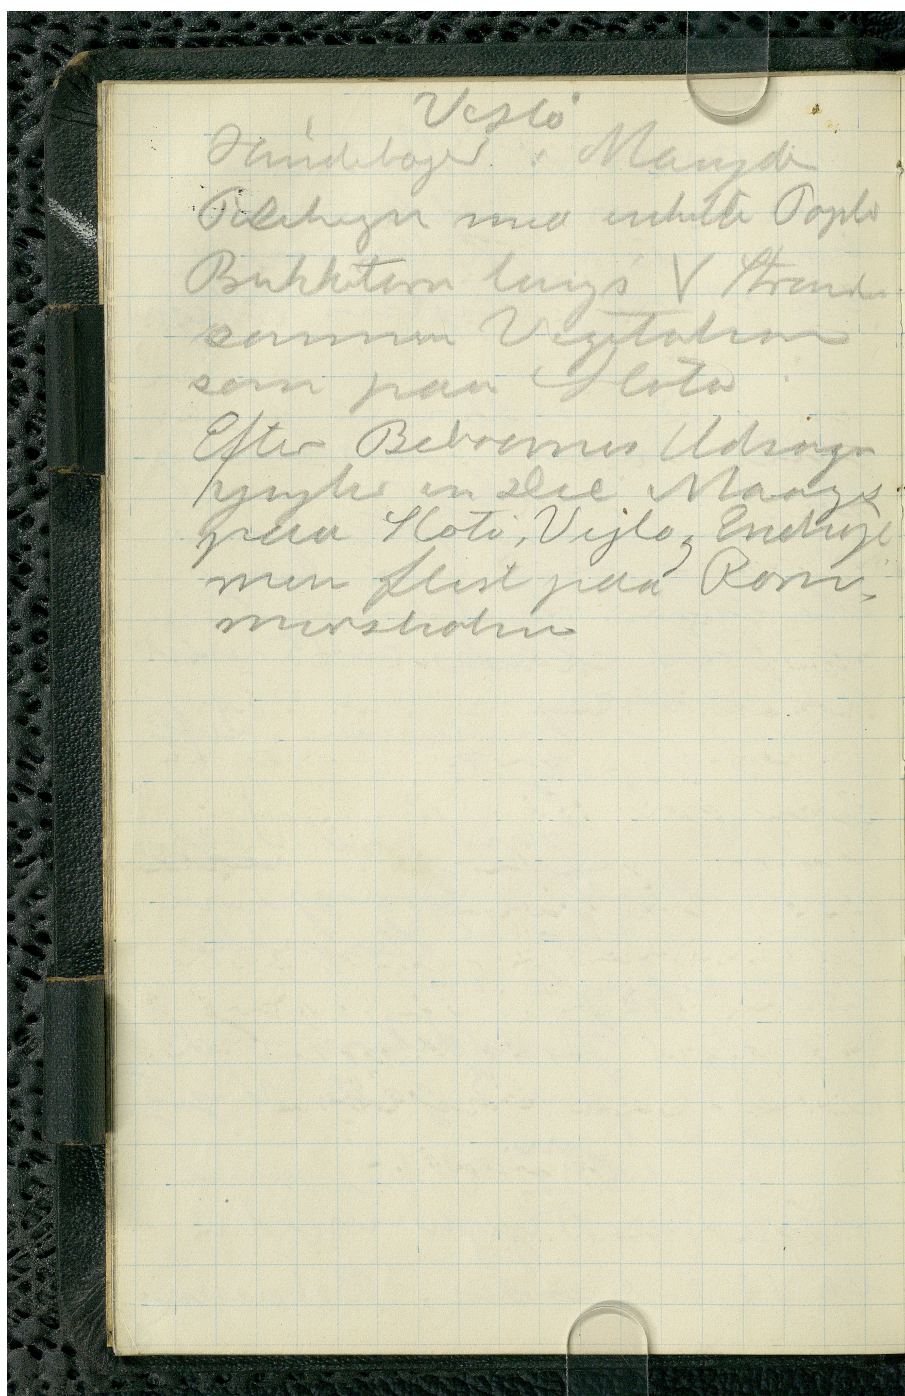 Vejlø
i Mængde
Pilehegn med enkelte Pople
Bukketorn langs V Strand
samme Vegetation
som paa Slotø.
Efter Beboernes Udsagn
yngler en Del Maage
paa Slotø, Vejlø,
men flest paa Rom,
mersholm